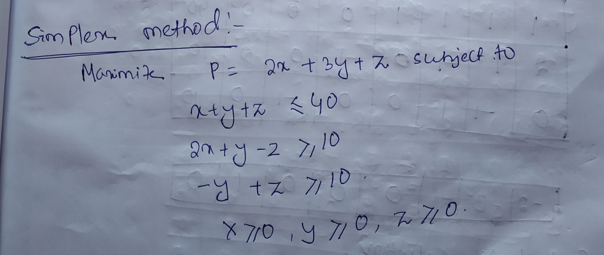 Simplex method:-
Maximize P = 2x + 3y + z subject to
x+y+z ≤ 40
2x+y-z ≥ 10
-y +z ≥ 10.
x ≥ 0, y ≥ 0, z ≥ 0.